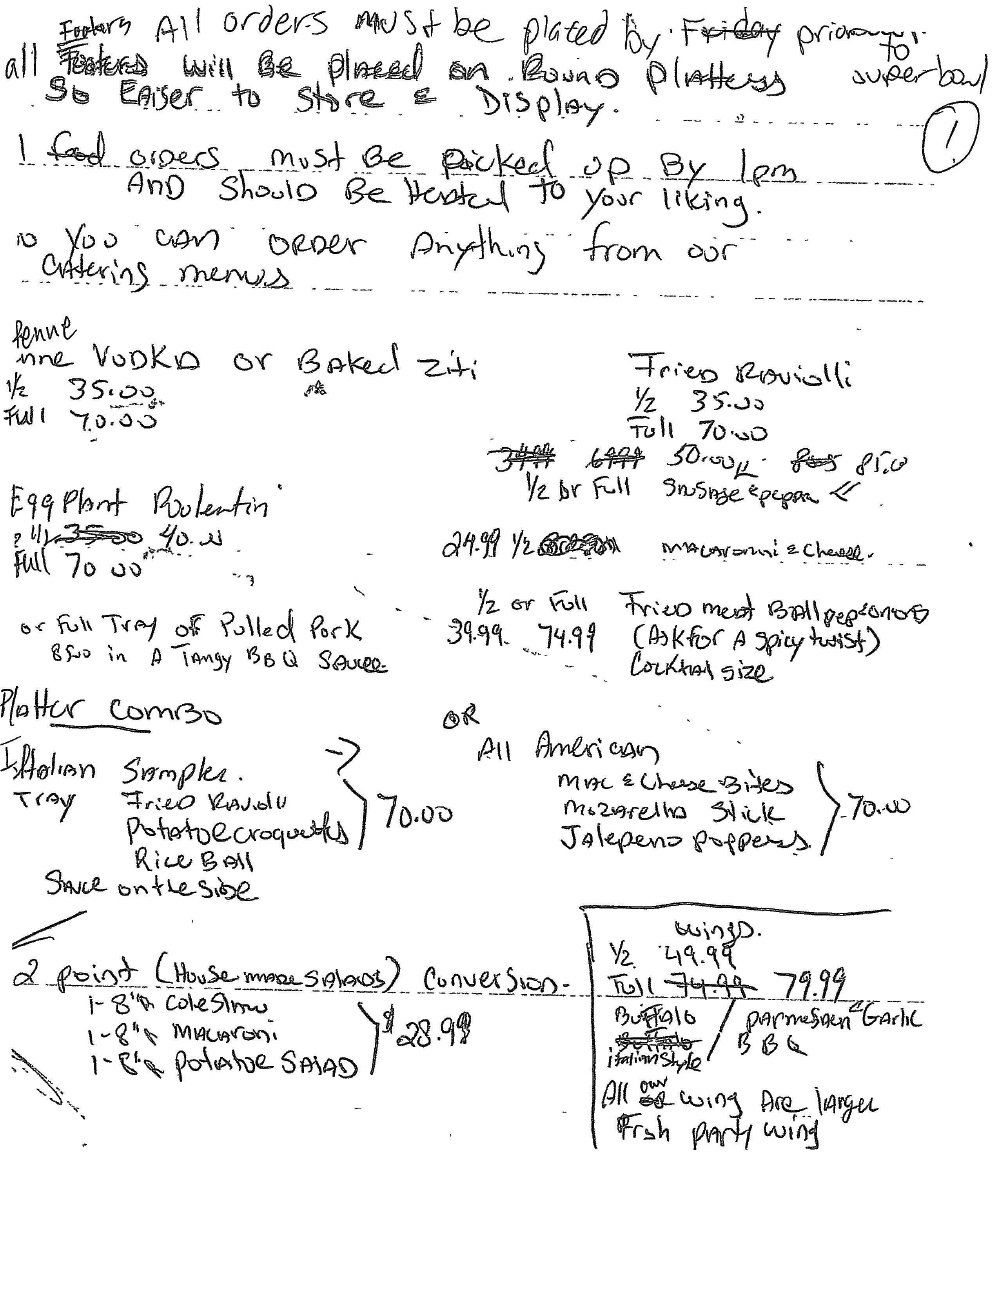 All orders must be plated by Friday prior to
all will Be placed on Round Platters superbowl
So Eaiser to Store & Display.
1
1 food orders must Be picked up By 1pm
AND Should Be Heated To your liking.
You can ORDER Anything from our
Catering menus
Penne
nne VODKA or Baked Ziti
1/2 35.00
Full 70.00
Fried Raviolli
1/2 35.00
Full 70.00
34.99 69.99 50.00 85.0
1/2 or Full Sausage & pepper
Egg Plant
1/2 35.00 40.00
Full 70 00
24.99 1/2 Macaronni & Cheese.
or Full Tray of Pulled Pork
8500 in A Tangy BBQ Sauce
1/2 or Full Fried meat Ball
39.99 74.99 (Ask for A spicy twist)
Cocktail size
Platter Combo
Italian Sampler.
Tray Fried Raviolu
Potatoe croquettes 70.00
Rice Ball
Sauce on the side
OR
All American
Mac & Cheese Bites
Mozarella Stick 70.00
Jalepeno poppers
2 point (House made Salads) Conversion.
1-8" Cole Slaw
1-8" Macaroni $28.99
1-8" Potatoe SALAD
Wings.
1/2 49.99
Full 74.99 79.99
Buffalo / parmesaen & Garlic
Buffalo BBQ
italian style
All our wing Are larger
Frsh party wing